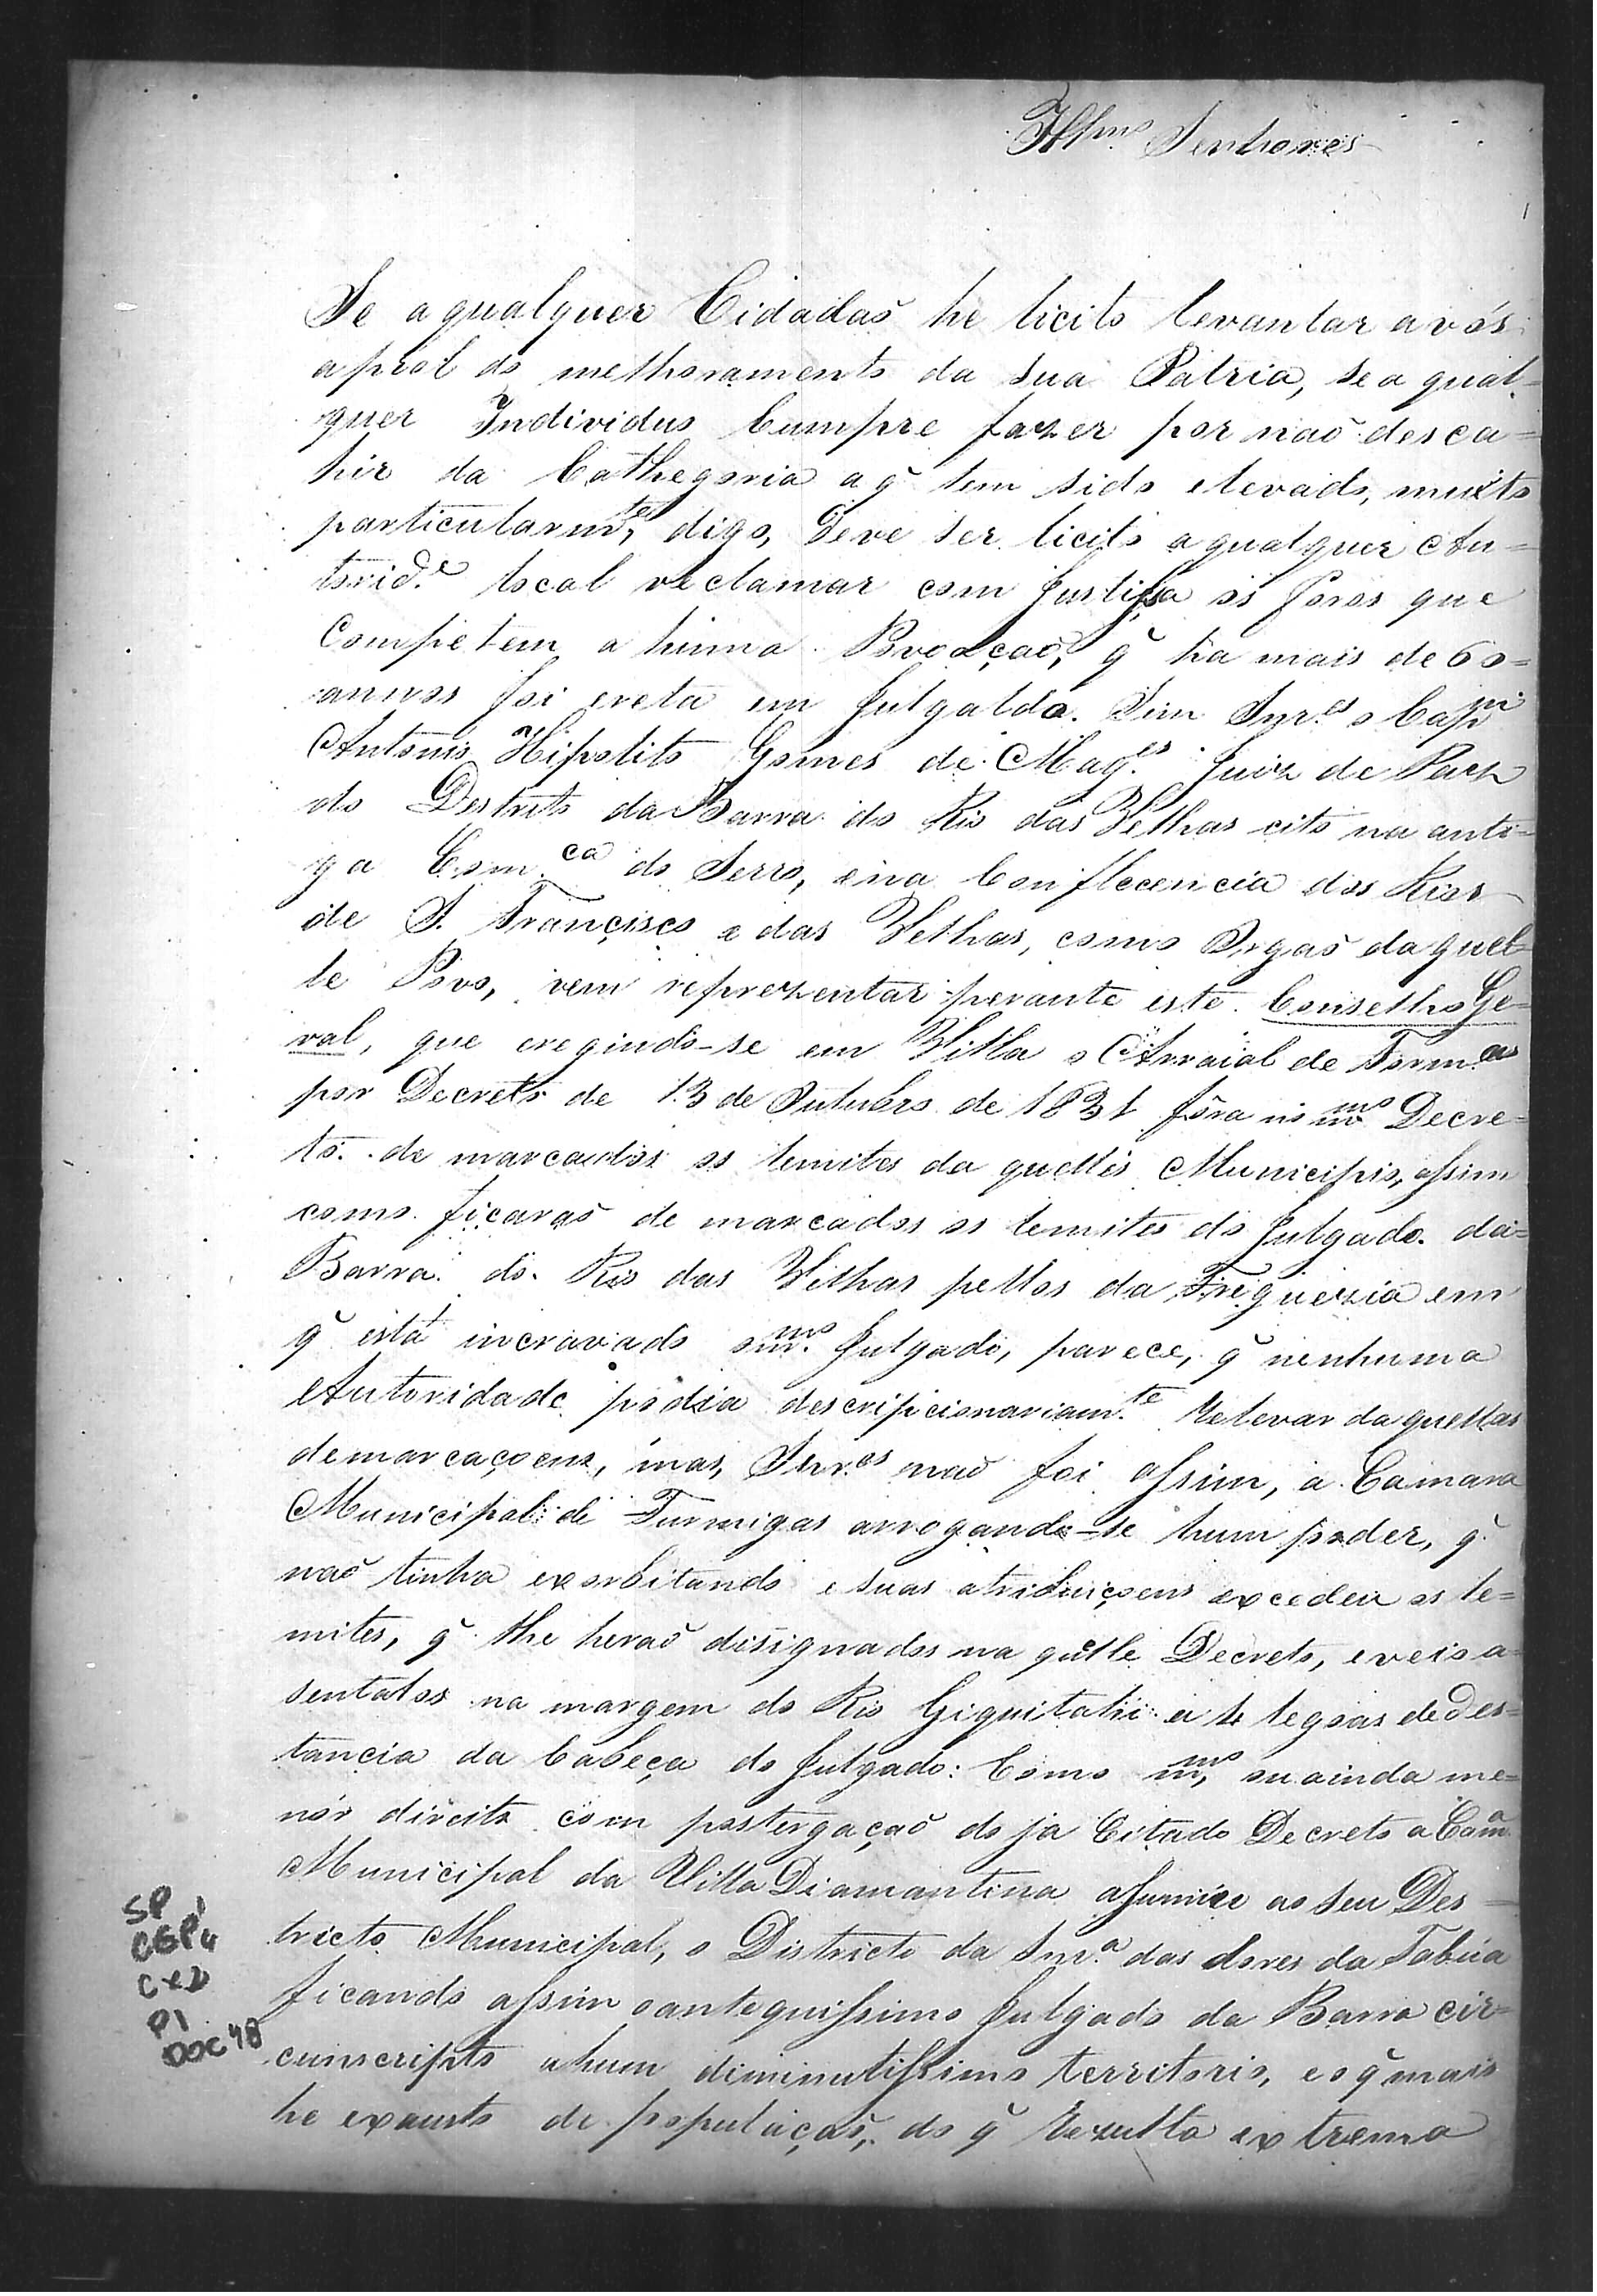 Illmos Senhores
1
Se a qualquer Cidadaõ he licito levantar a vós
a prol do melhoramento da sua Patria, se a qual-
quer Individuo Cumpre fazer por naõ desca=
hir da Cathegoria a q̃ tem sido elevado, muito
particularmte, digo, deve ser licito a qualquer Au=
torid.e local reclamar com Justissa os foros que
Competem a huma Povoaçaõ, q̃ ha mais de 60=
annos foi ereta em Julgaldo. Sim Snr.es o Capm
Antonio Hipolito Gomes de Mag.es Juiz de Paz
do Destrito da Barra do Rio das Velhas cito na anti=
ga Com.ca do Serro, e na Confluencia dos Rios
de S. Francisco e das Velhas, como Orgaõ daquel-
le Povo, vem reprezentar perante este Conselho Ge=
ral, que eregindo-se em Villa o Arraial de Form.as
por Decreto de 13 de Outubro de 1831 fôra no mmo Decre=
to demarcados os lemites da quelle Municipio, assim
como ficaraõ de marcados os lemites do Julgado da=
Barra do Rio das Velhas pellos da Freguezia em
q̃ está incravado o mmo Julgado, parece, q̃ nenhuma
Autoridade podia descripicionariam.te relevar da quellas
demarcaçoens, mas, Snr.es naõ foi assim, a Camara
Municipal de Furmigas arrogando-se hum poder, q̃
naõ tinha exorbitando e suas atribuiçoens excedeu os le=
mites, q̃ lhe heraõ disignados na quelle Decreto, e veio a=
sentalos na margem do Rio Giquitahi a legoas de Des=
tancia da Cabeça do Julgado: Como mmo, ou ainda me=
nór direito com postergaçaõ do ja Citado Decreto a Cama
Municipal da Villa Diamantina assumiu ao seu Des-
tricto Municipal, o Districto da Snr.a das dores da Tabúa
ficando assim o antequissimo Julgado da Barra cir=
cumscripto a hum diminutissimo territorio, e o q̃ mais
he exausto de populaçaõ, do q̃ rezulta extrema
SP
CGP1
CX2
P1
DOC 48